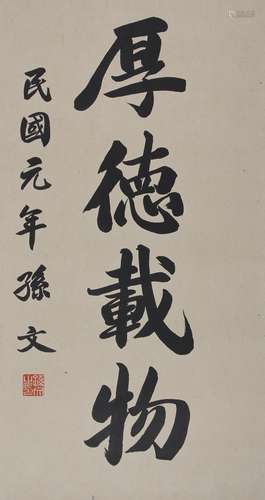 厚德載物
民國元年孫文